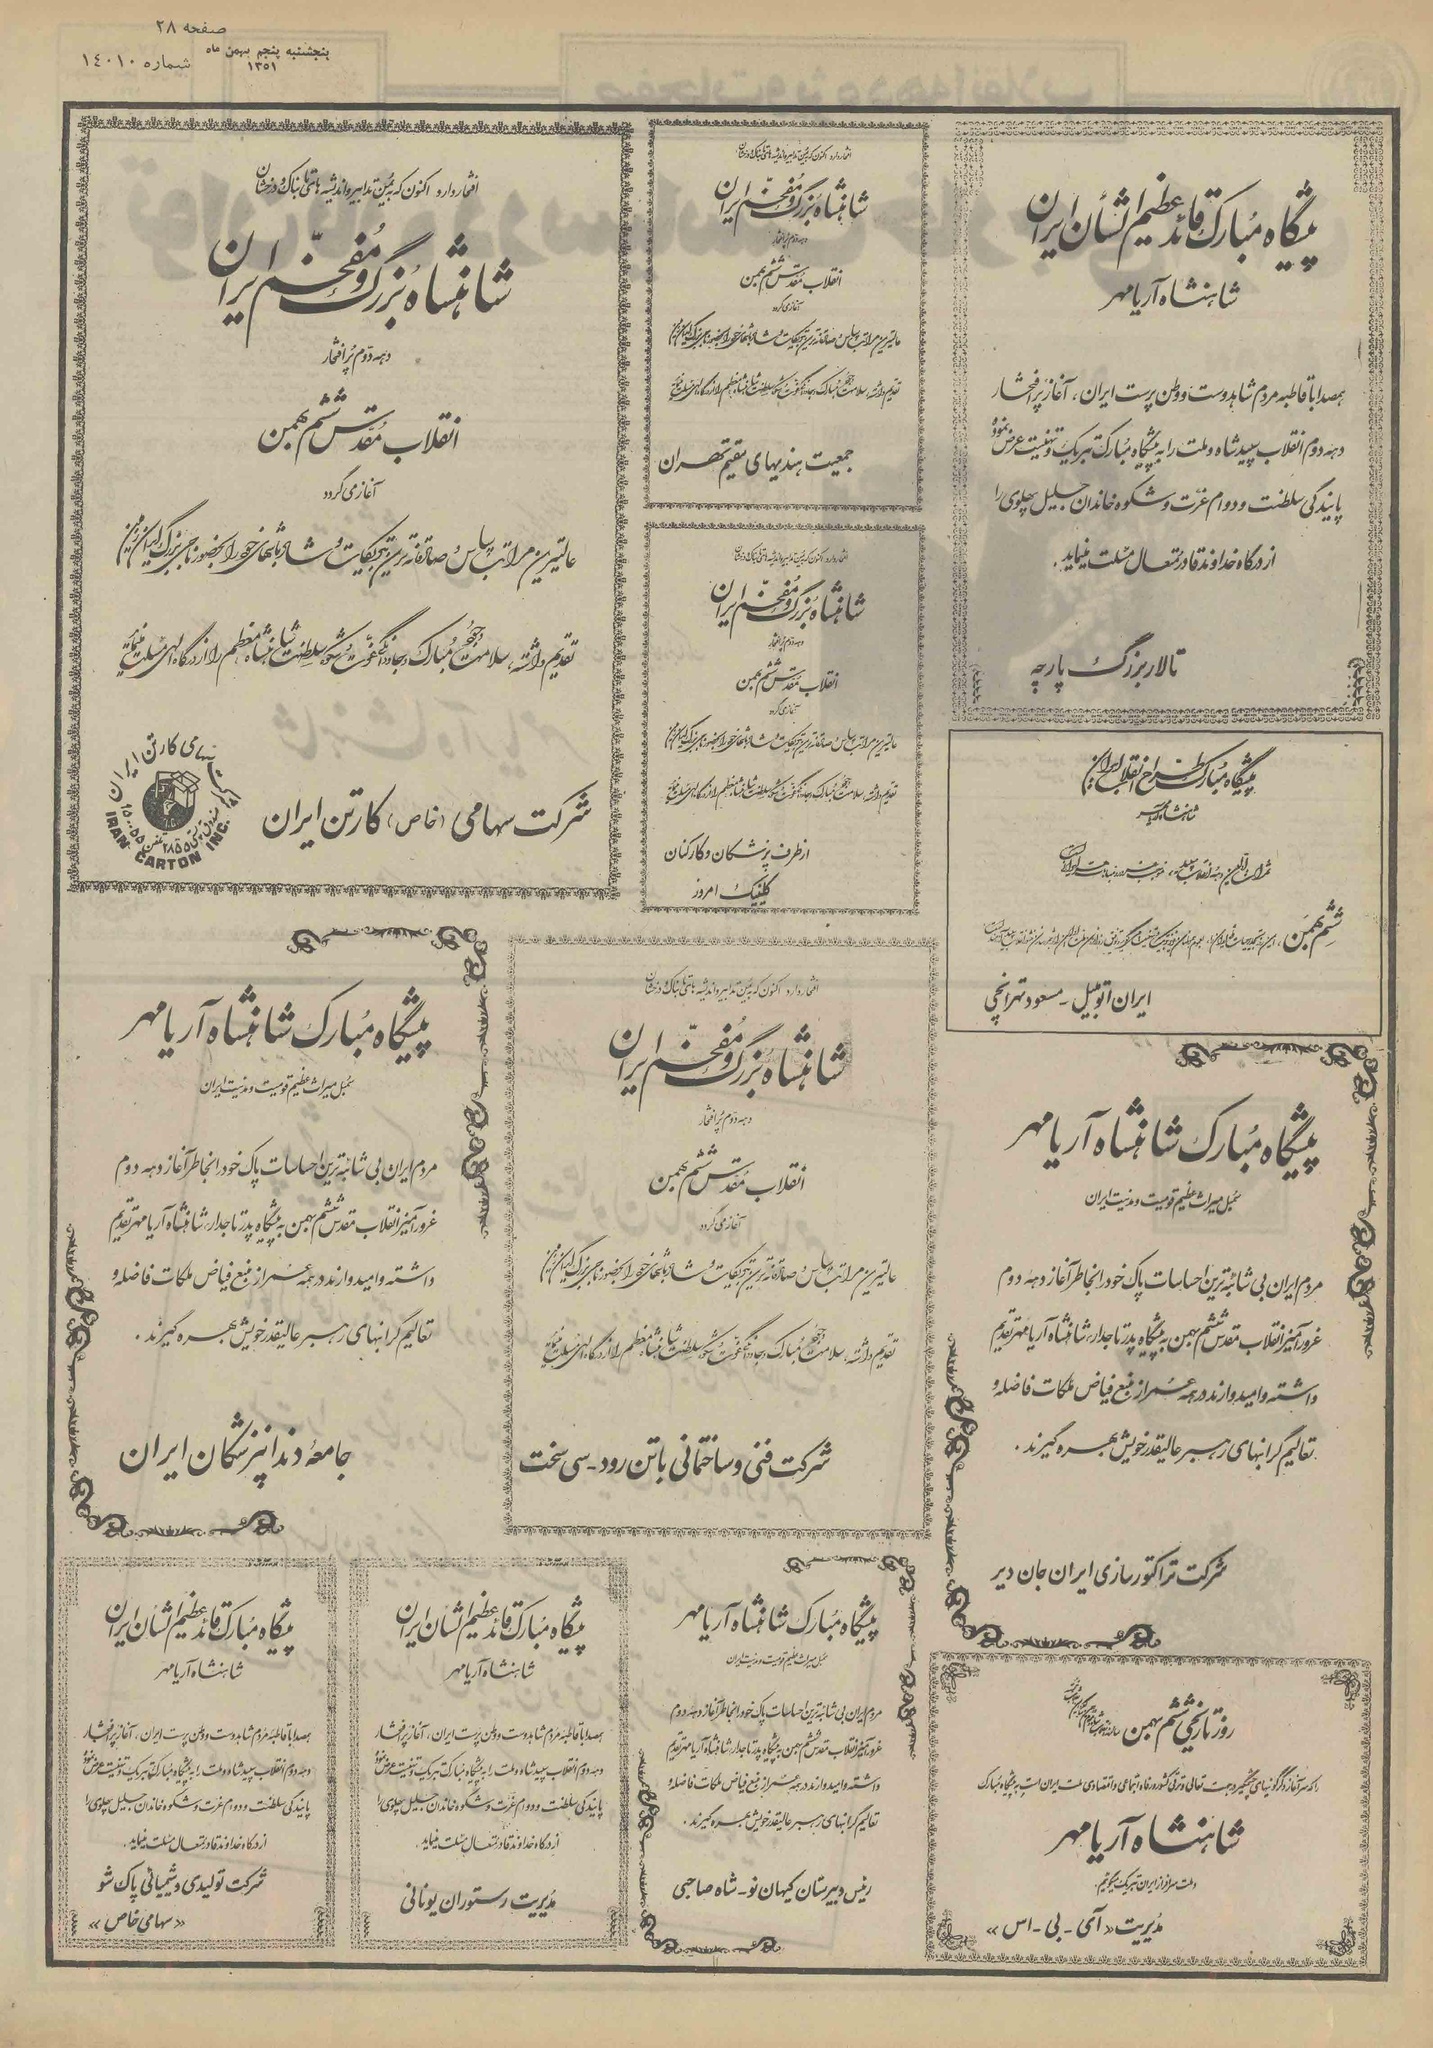 صفحه ۲۸
پنجشنبه پنجم بهمن ماه
۱۳۵۱
شماره ۱۴۰۱۰
پیشگاه مبارک قائد عظیم الشأن ایران
شاهنشاه آریامهر
همصدا با قاطبه مردم شاهدوست و وطن پرست ایران، آغاز پر افتخار
دهه دوم انقلاب سپید شاه و ملت را به پیشگاه مبارک تبریک و تهنیت عرض نموده
پایندگی سلطنت و دوام عزت و شکوه خاندان جلیل پهلوی را
از درگاه خداوند قادر متعال مسئلت مینماید.
تالار بزرگ پارچه
افتخار دارد اکنون که بیمن تدابیر و اندیشه های تابناک و درخشان
شاهنشاه بزرگ و مفخم ایران
دهه دوم پر افتخار
انقلاب مقدس ششم بهمن
آغاز می گردد
عالیترین مراتب سپاس و صادقانه ترین تبریکات و شادباشهای خود را بحضور ناجی بزرگ ایران زمین
تقدیم داشته، سلامت وجود مبارک و جاودانگی عزت و شکوه سلطنت شاهنشاه معظم را از درگاه الهی مسئلت مینماید
جمعیت هندیهای مقیم تهران
افتخار دارد اکنون که بیمن تدابیر و اندیشه های تابناک و درخشان
شاهنشاه بزرگ و مفخم ایران
دهه دوم پر افتخار
انقلاب مقدس ششم بهمن
آغاز می گردد
عالیترین مراتب سپاس و صادقانه ترین تبریکات و شادباشهای خود را بحضور ناجی بزرگ ایران زمین
تقدیم داشته، سلامت وجود مبارک و جاودانگی عزت و شکوه سلطنت شاهنشاه معظم را از درگاه الهی مسئلت مینماید
شرکت سهامی (خاص) کارتن ایران
شرکت سهامی کارتن ایران
IRAN CARTON INC.
افتخار دارد اکنون که بیمن تدابیر و اندیشه های تابناک و درخشان
شاهنشاه بزرگ و مفخم ایران
دهه دوم پر افتخار
انقلاب مقدس ششم بهمن
آغاز می گردد
عالیترین مراتب سپاس و صادقانه ترین تبریکات و شادباشهای خود را بحضور ناجی بزرگ ایران زمین
تقدیم داشته، سلامت وجود مبارک و جاودانگی عزت و شکوه سلطنت شاهنشاه معظم را از درگاه الهی مسئلت مینماید
از طرف پزشکان و کارکنان
کلینیک امروز
پیشگاه مبارک طراح انقلاب ایران
شاهنشاه آریامهر
ششم بهمن
ایران اتومبیل - مسعود تهرانچی
پیشگاه مبارک شاهنشاه آریامهر
سمبل میراث عظیم قومیت و مدنیت ایران
مردم ایران بی شائبه ترین احساسات پاک خود را بخاطر آغاز دهه دوم
غرور آمیز انقلاب مقدس ششم بهمن به پیشگاه پدر تاجدار، شاهنشاه آریامهر تقدیم
داشته و امیدوارند در همه عمر از منبع فیاض ملکات فاضله و
تعالیم گرانبهای رهبر عالیقدر خویش بهره گیرند.
شرکت تراکتورسازی ایران جان دیر
افتخار دارد اکنون که بیمن تدابیر و اندیشه های تابناک و درخشان
شاهنشاه بزرگ و مفخم ایران
دهه دوم پر افتخار
انقلاب مقدس ششم بهمن
آغاز می گردد
عالیترین مراتب سپاس و صادقانه ترین تبریکات و شادباشهای خود را بحضور ناجی بزرگ ایران زمین
تقدیم داشته، سلامت وجود مبارک و جاودانگی عزت و شکوه سلطنت شاهنشاه معظم را از درگاه الهی مسئلت مینماید
شرکت فنی و ساختمانی باتن رود - سی سخت
پیشگاه مبارک شاهنشاه آریامهر
سمبل میراث عظیم قومیت و مدنیت ایران
مردم ایران بی شائبه ترین احساسات پاک خود را بخاطر آغاز دهه دوم
غرور آمیز انقلاب مقدس ششم بهمن به پیشگاه پدر تاجدار، شاهنشاه آریامهر تقدیم
داشته و امیدوارند در همه عمر از منبع فیاض ملکات فاضله و
تعالیم گرانبهای رهبر عالیقدر خویش بهره گیرند.
جامعه دندانپزشکان ایران
روز تاریخی ششم بهمن
شاهنشاه آریامهر
و ملت سرافراز ایران تبریک میگوئیم.
مدیریت «آی - بی - اس»
پیشگاه مبارک شاهنشاه آریامهر
سمبل میراث عظیم قومیت و مدنیت ایران
مردم ایران بی شائبه ترین احساسات پاک خود را بخاطر آغاز دهه دوم
غرور آمیز انقلاب مقدس ششم بهمن به پیشگاه پدر تاجدار، شاهنشاه آریامهر تقدیم
داشته و امیدوارند در همه عمر از منبع فیاض ملکات فاضله و
تعالیم گرانبهای رهبر عالیقدر خویش بهره گیرند.
رئیس دبیرستان کیهان نو - شاه صاحبی
پیشگاه مبارک قائد عظیم الشأن ایران
شاهنشاه آریامهر
همصدا با قاطبه مردم شاهدوست و وطن پرست ایران، آغاز پر افتخار
دهه دوم انقلاب سپید شاه و ملت را به پیشگاه مبارک تبریک و تهنیت عرض نموده
پایندگی سلطنت و دوام عزت و شکوه خاندان جلیل پهلوی را
از درگاه خداوند قادر متعال مسئلت مینماید.
مدیریت رستوران یونانی
پیشگاه مبارک قائد عظیم الشأن ایران
شاهنشاه آریامهر
همصدا با قاطبه مردم شاهدوست و وطن پرست ایران، آغاز پر افتخار
دهه دوم انقلاب سپید شاه و ملت را به پیشگاه مبارک تبریک و تهنیت عرض نموده
پایندگی سلطنت و دوام عزت و شکوه خاندان جلیل پهلوی را
از درگاه خداوند قادر متعال مسئلت مینماید.
شرکت تولیدی و شیمیائی پاک شو
«سهامی خاص»